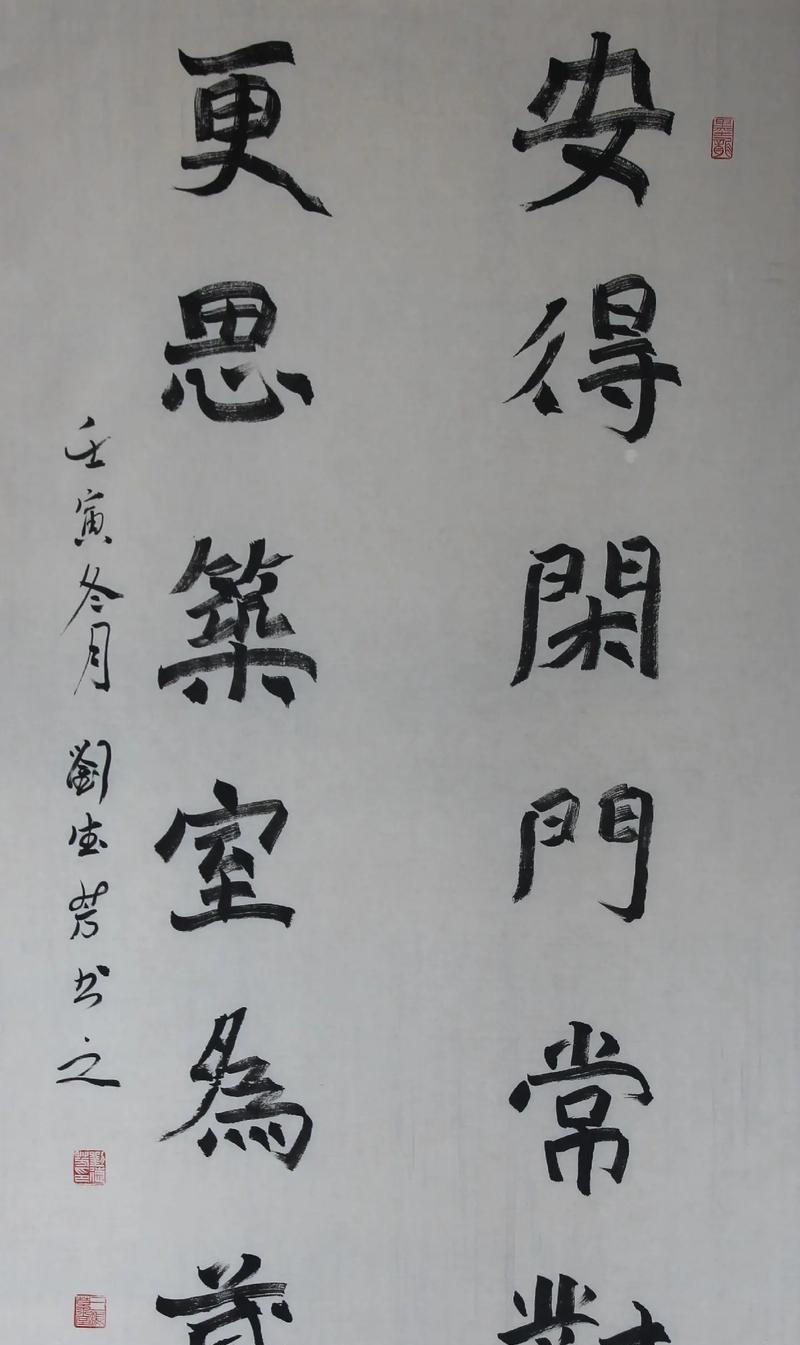 安得閑門常對
更思築室為藏
壬寅冬月劉生芳书之